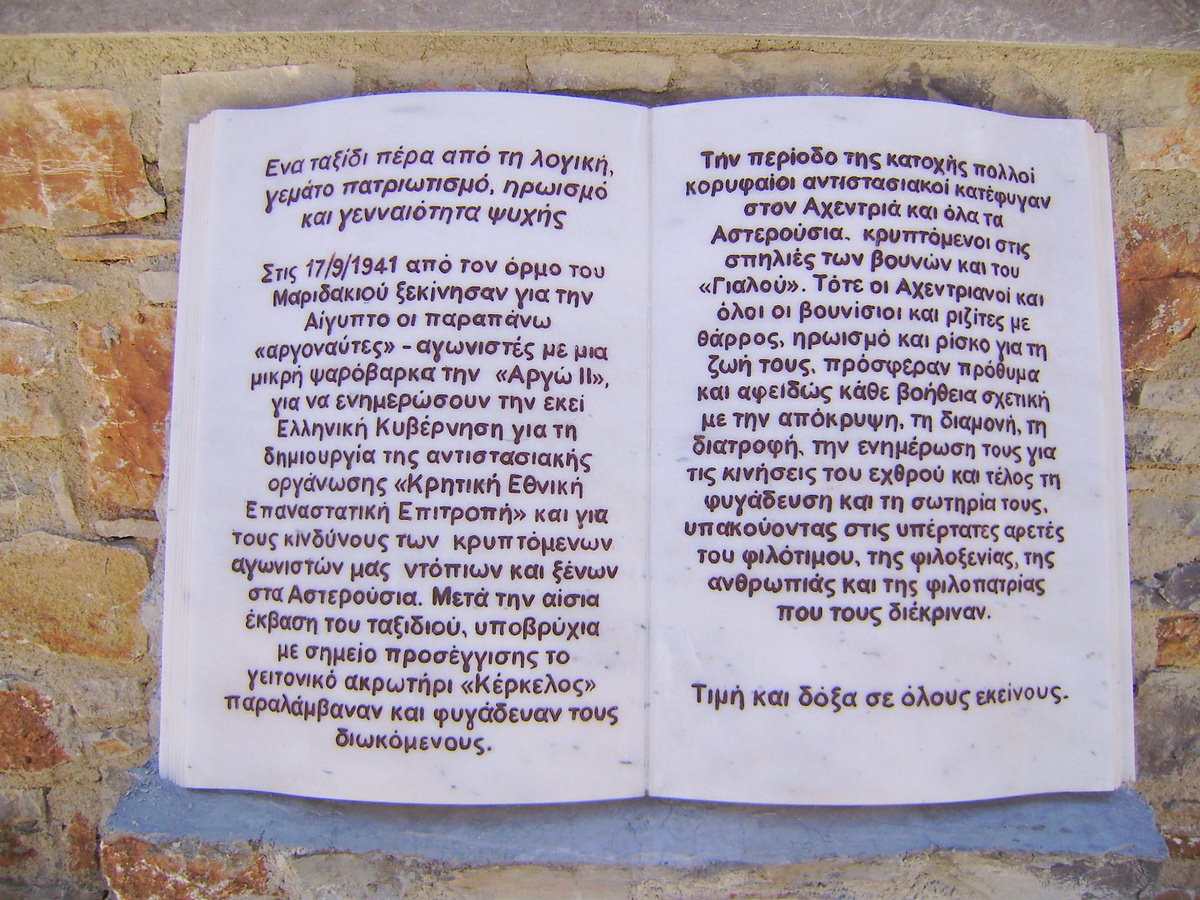 Ενα ταξίδι πέρα από τη λογική,
γεμάτο πατριωτισμό, ηρωισμό
και γενναιότητα ψυχής
Στις 17/9/1941 από τον όρμο του
Μαριδακιού ξεκίνησαν για την
Αίγυπτο οι παραπάνω
«αργοναύτες» - αγωνιστές με μια
μικρή ψαρόβαρκα την «Αργώ ΙΙ»,
για να ενημερώσουν την εκεί
Ελληνική Κυβέρνηση για τη
δημιουργία της αντιστασιακής
οργάνωσης «Κρητική Εθνική
Επαναστατική Επιτροπή» και για
τους κινδύνους των κρυπτόμενων
αγωνιστών μας ντόπιων και ξένων
στα Αστερούσια. Μετά την αίσια
έκβαση του ταξιδιού, υποβρύχια
με σημείο προσέγγισης το
γειτονικό ακρωτήρι «Κέρκελος»
παραλάμβαναν και φυγάδευαν τους
διωκόμενους.
Την περίοδο της κατοχής πολλοί
κορυφαίοι αντιστασιακοί κατέφυγαν
στον Αχεντριά και όλα τα
Αστερούσια. κρυπτόμενοι στις
σπηλιές των βουνών και του
«Γιαλού». Τότε οι Αχεντριανοί και
όλοι οι βουνίσιοι και ριζίτες με
θάρρος, ηρωισμό και ρίσκο για τη
ζωή τους, πρόσφεραν πρόθυμα
και αφειδώς κάθε βοήθεια σχετική
με την απόκρυψη, τη διαμονή, τη
διατροφή, την ενημέρωση τους για
τις κινήσεις του εχθρού και τέλος τη
φυγάδευση και τη σωτηρία τους,
υπακούοντας στις υπέρτατες αρετές
του φιλότιμου, της φιλοξενίας, της
ανθρωπιάς και της φιλοπατρίας
που τους διέκριναν.
Τιμή και δόξα σε όλους εκείνους.